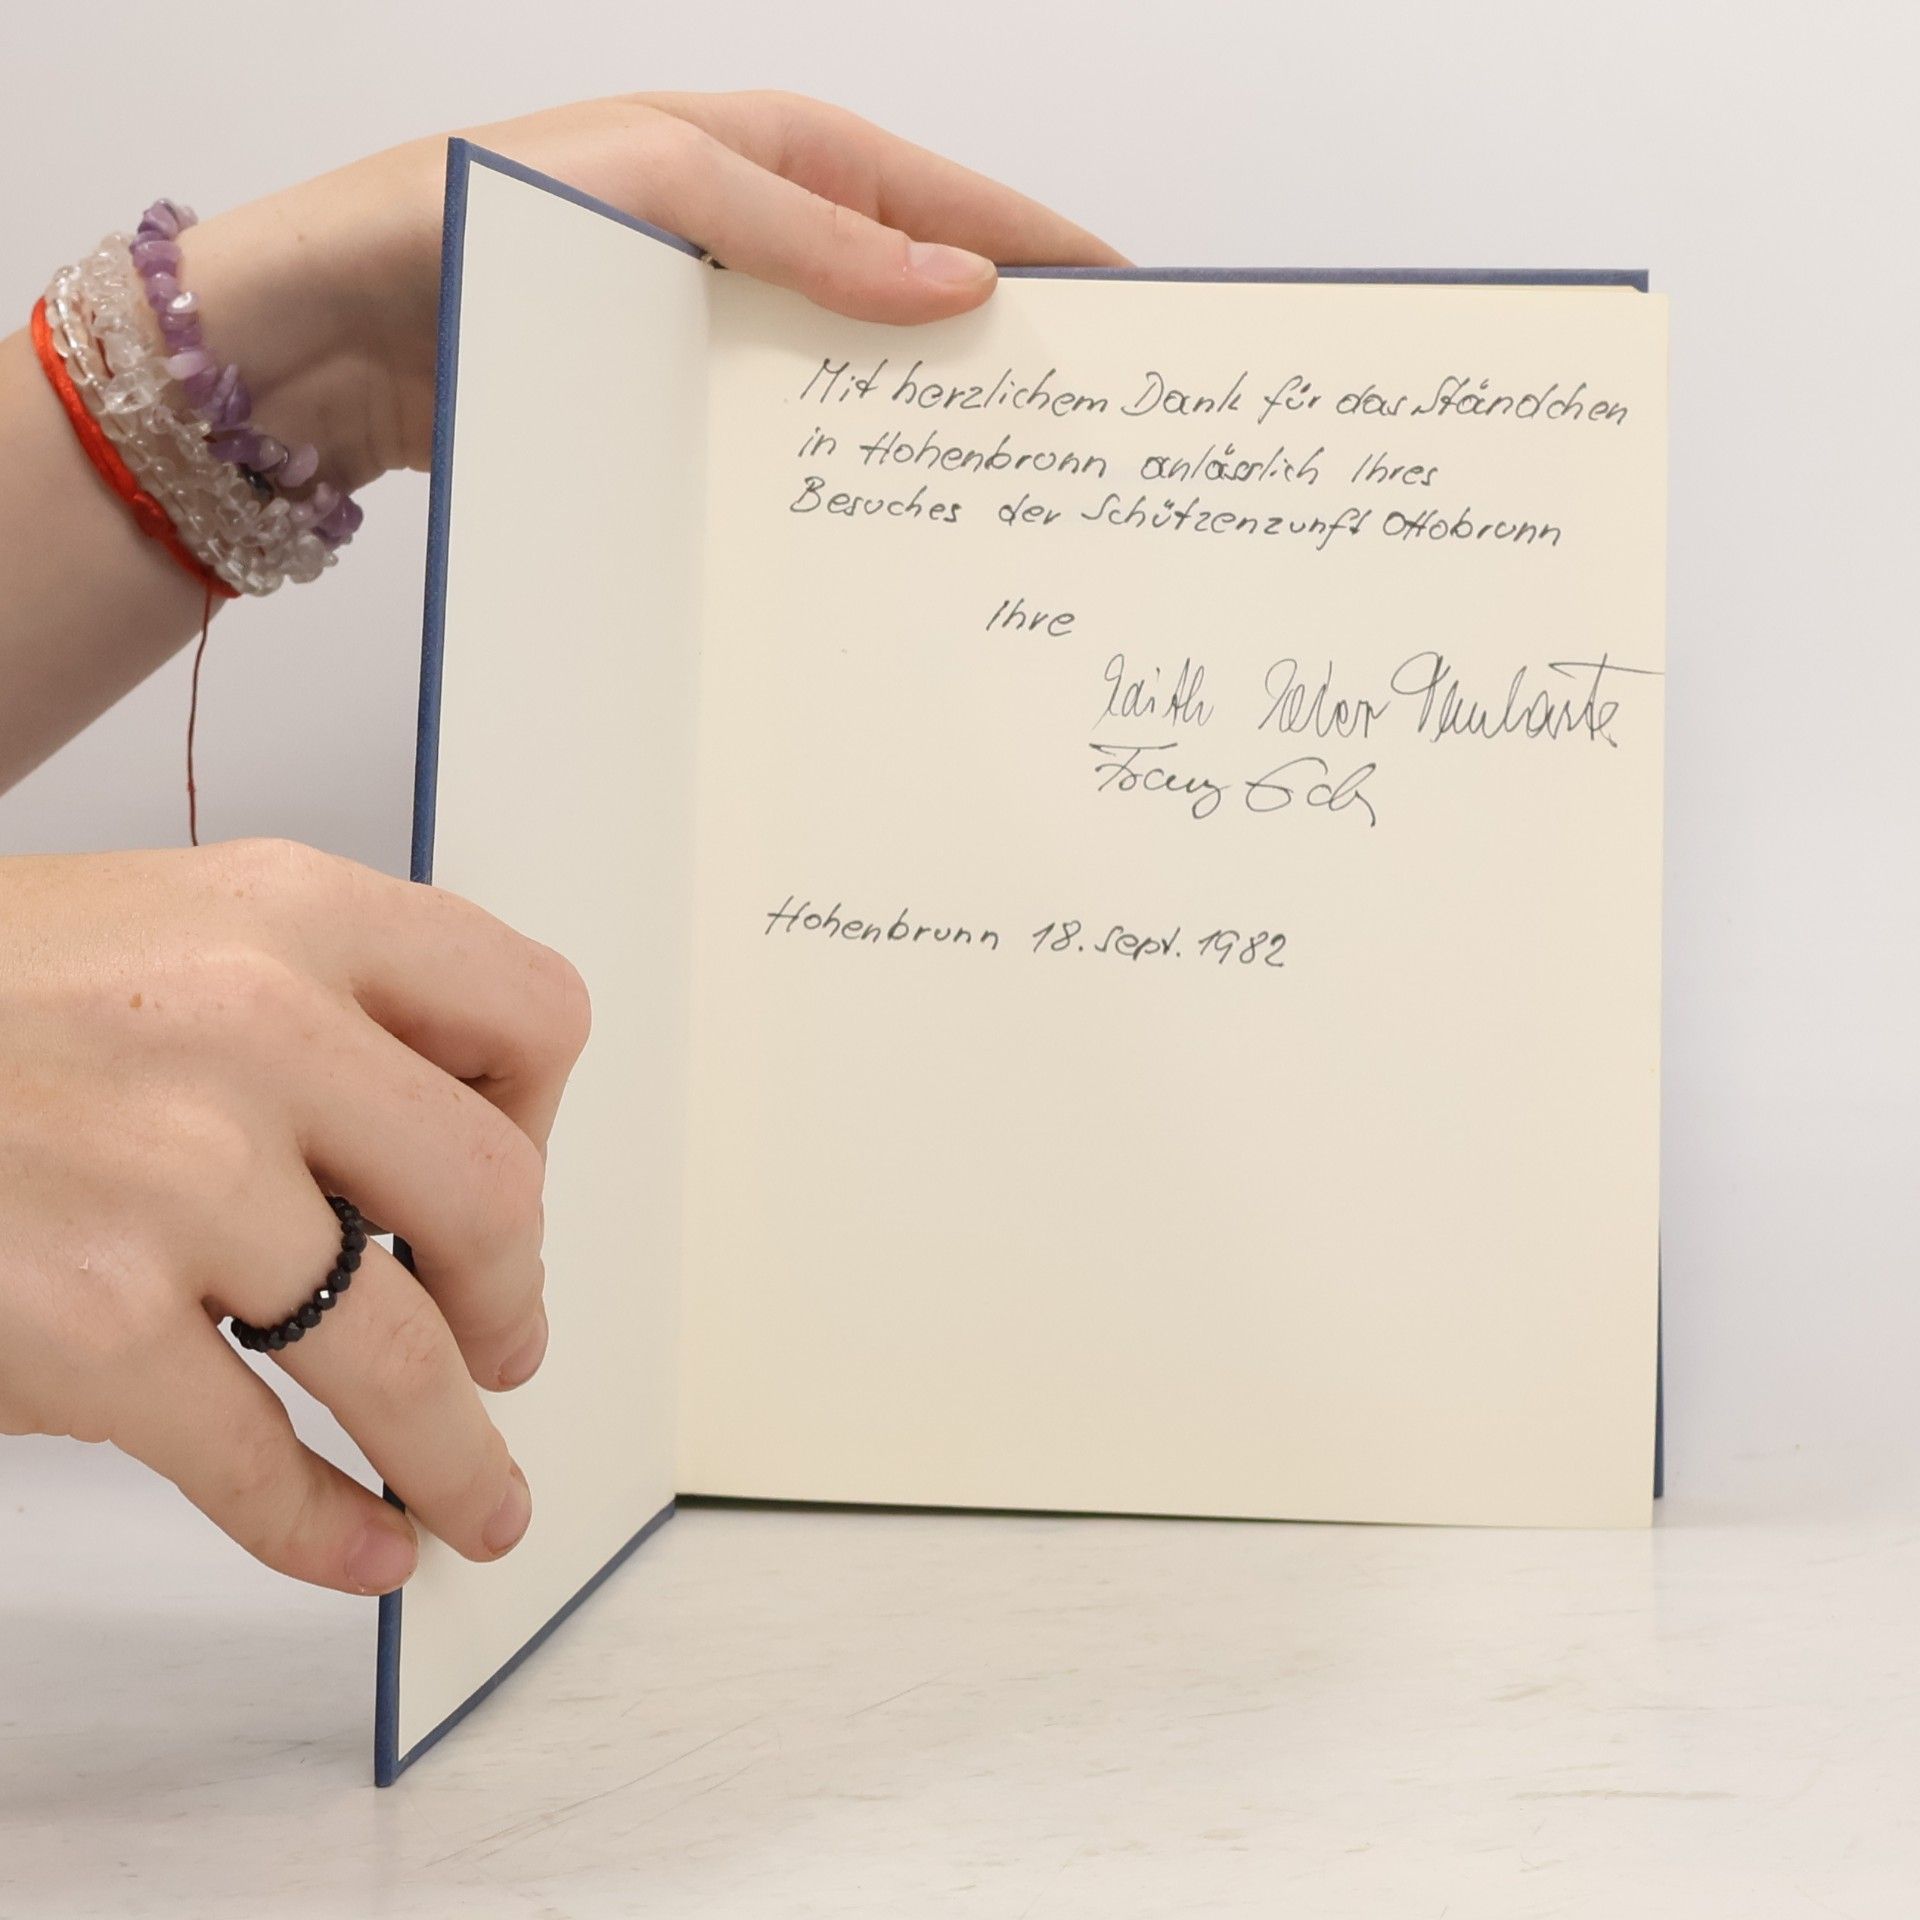 Mit herzlichem Dank für das Ständchen
in Hohenbrunn anlässlich Ihres
Besuches der Schützenzunft Ottobrunn
Ihre
Edith
Franz
Hohenbrunn 18. Sept. 1982